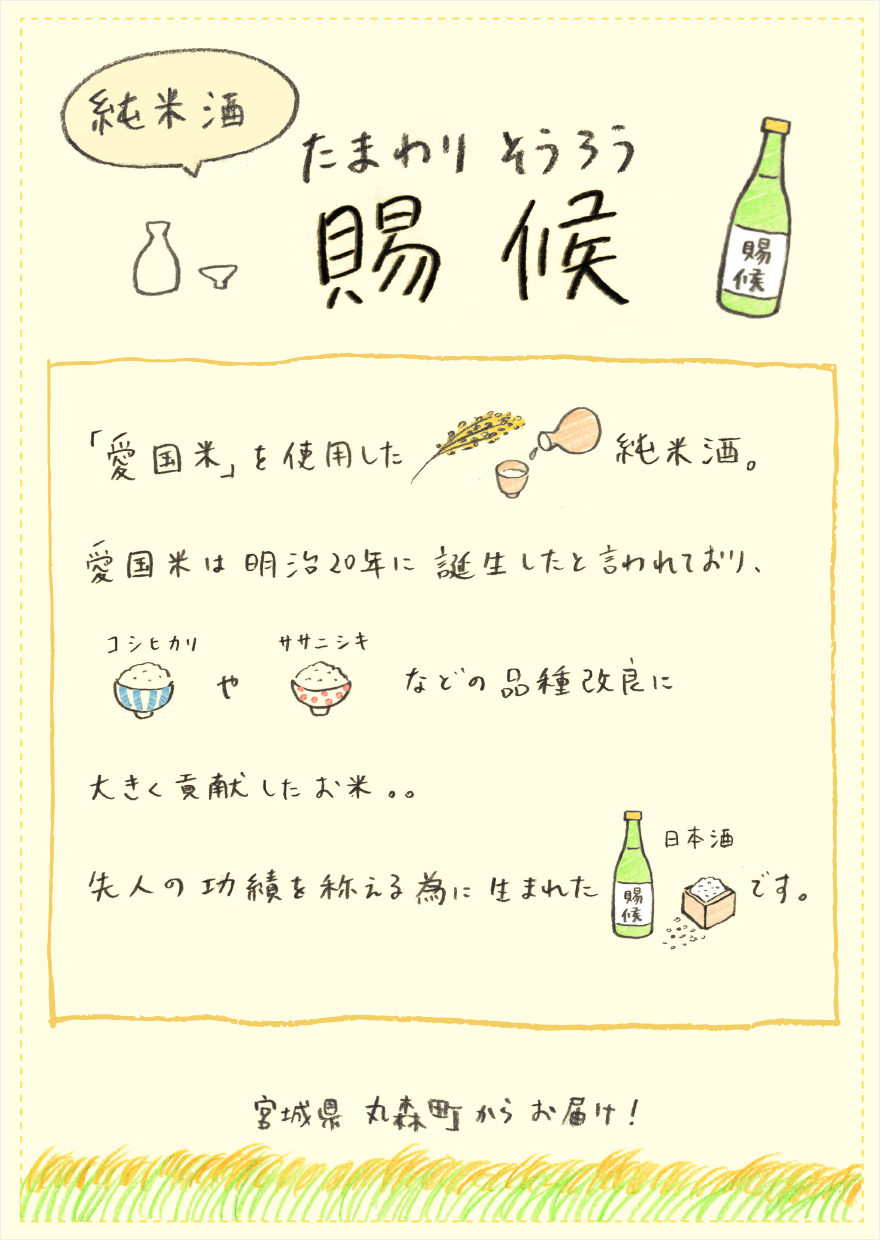 純米酒
たまわり そうろう
賜 候
賜
候
「愛国米」を使用した 純米酒。
愛国米は明治20年に 誕生したと言われており、
コシヒカリ ササニシキ
や などの品種改良に
大きく貢献したお米。。
日本酒
先人の功績を称える為に生まれた です。
賜
候
宮城県 丸森町からお届け!